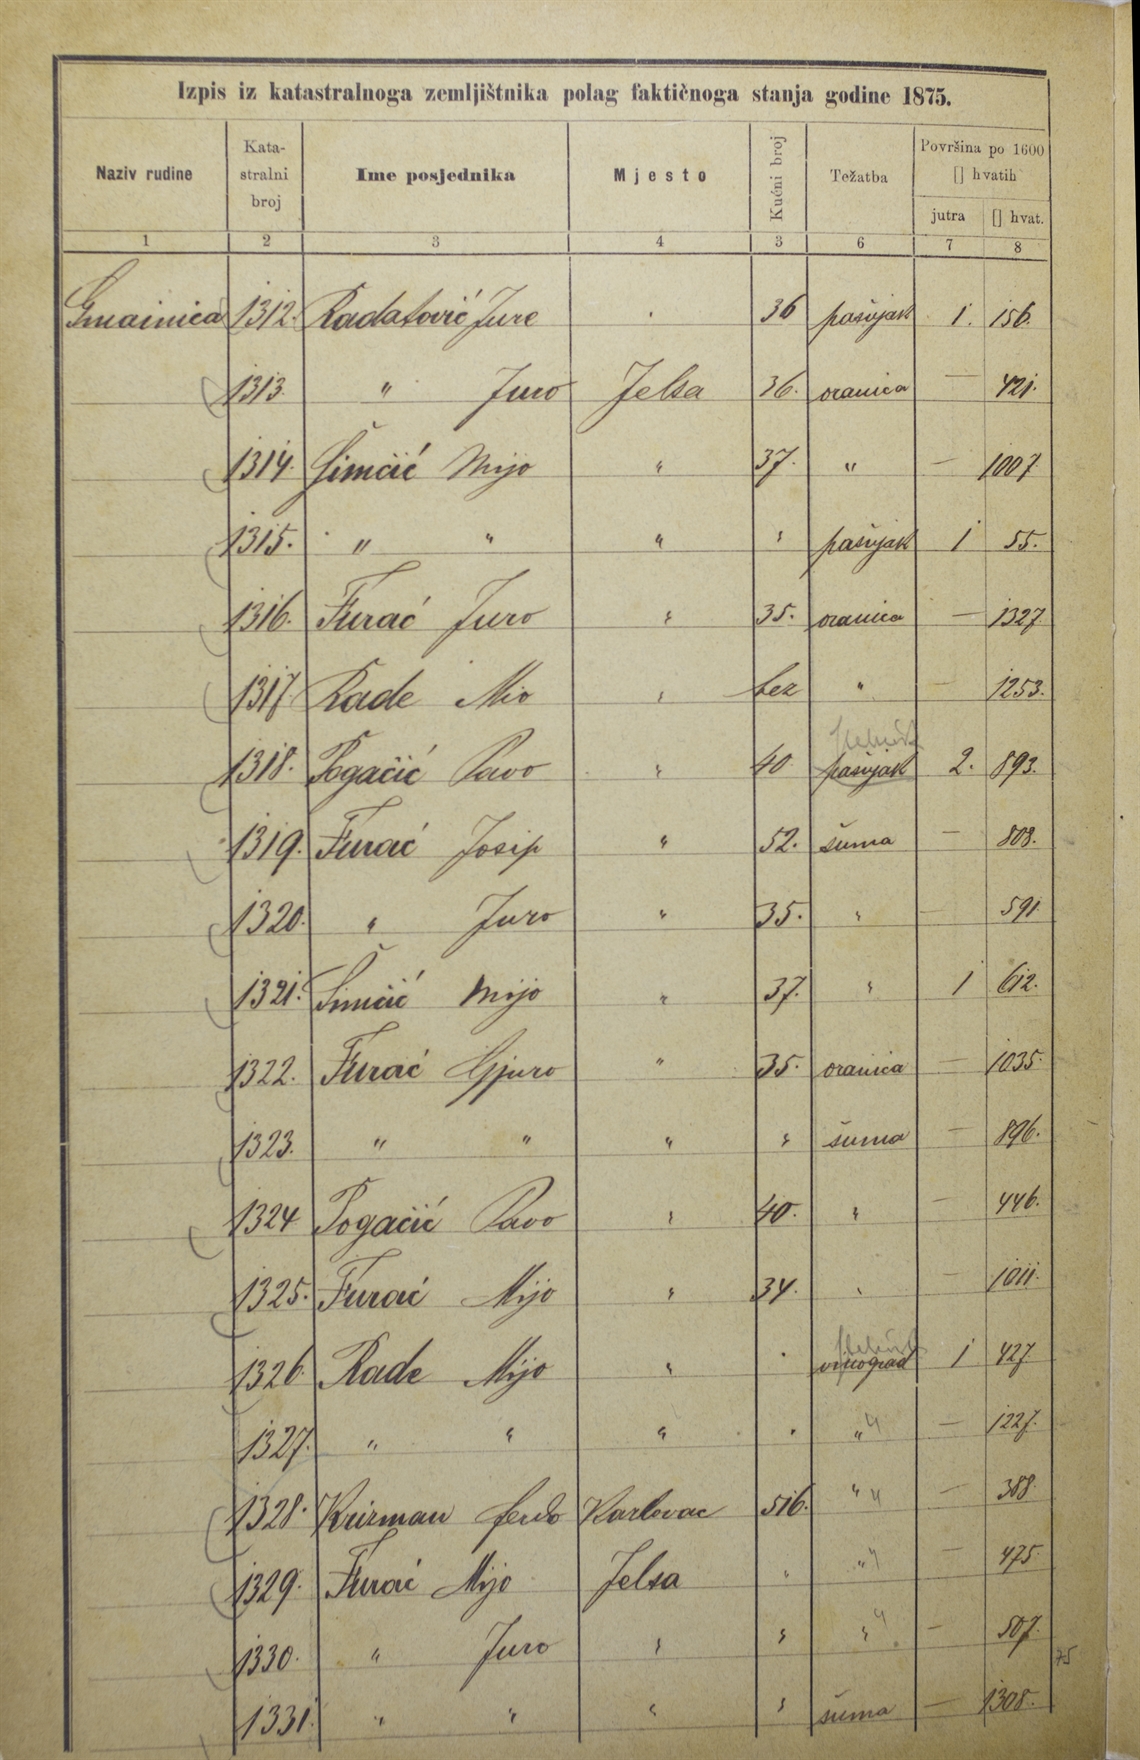 Izpis iz katastralnoga zemljištnika polag faktičnoga stanja godine 1875.
Naziv rudine Kata-stralni broj Ime posjednika Mjesto Kućni broj Težatba Površina po 1600 [] hvatih
jutra [] hvat.
1 2 3 4 3 6 7 8
Gmainica 1312. Radatović Jure 36 pašnjak 1. 156.
1313. " Juro Jelsa 36. oranica — 421.
1314. Šimčić Mijo " 37. " — 1007
1315. " " " " pašnjak 1 55.
1316. Furać Juro " 35. oranica — 1327
1317 Rade Mio " bez " — 1253.
1318. Pogačić Pavo " 40 pašnjak 2. 893.
1319. Furać Josip " 52. šuma — 808.
1320. " Juro " 35. " — 591
1321. Šimčić Mijo " 37. " 1 612.
1322. Furać Gjuro " 35. oranica — 1035.
1323. " " " " šuma — 896.
1324 Pogačić Pavo " 40. " — 446.
1325. Furać Mijo " 34. " — 1011.
1326. Rade Mijo " " vinograd 1 427
1327. " " " " " — 1227.
1328. Krizman Ferdo Karlovac 516. " — 388.
1329. Furać Mijo Jelsa " " — 475.
1330. " Juro " " " — 507.
75
1331. " " " " šuma — 1308.